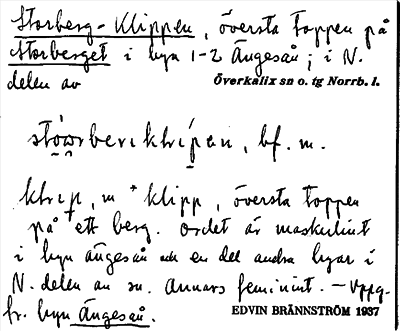 Storberg-Klippen, översta toppen på
Storberget i byn 1-2 Ängesån; i N.
delen av
Överkalix sn o. tg Norrb. l.
bf. m.
klip, m "klipp, översta toppen
på ett berg. Ordet är maskulint
i byn Ängesån och en del andra byar i
N. delen av sn. Annars feminint. – Uppg.
fr. byn Ängesån.
EDVIN BRÄNNSTRÖM 1937